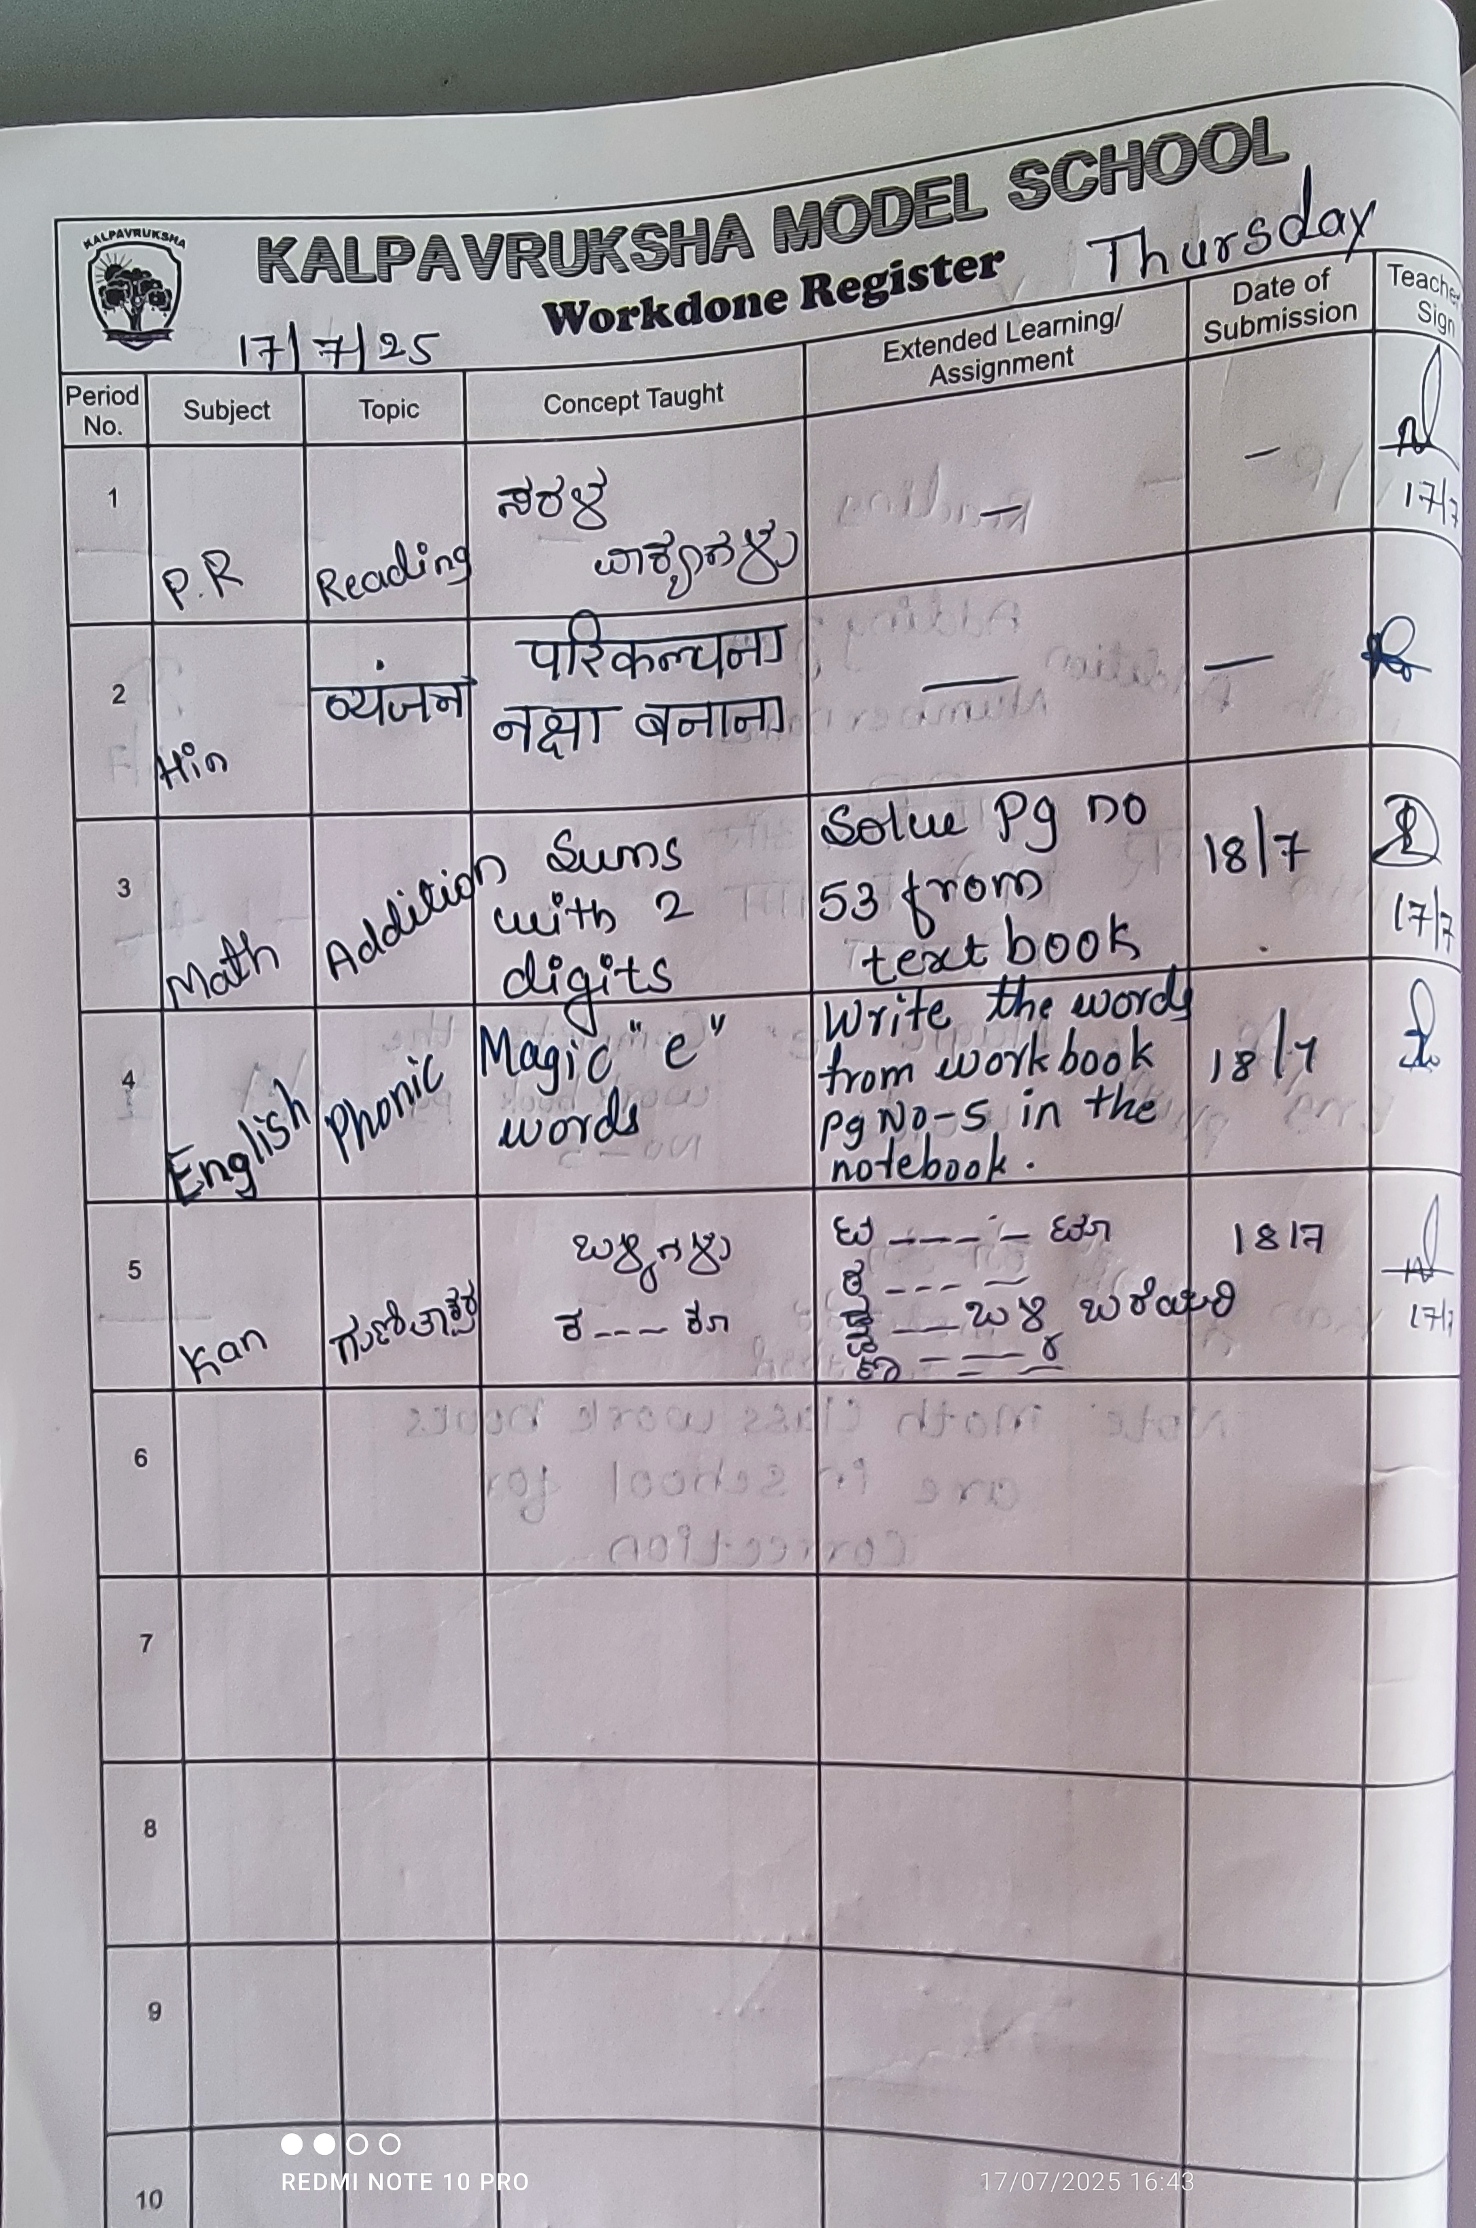 KALPAVRUKSHA
KALPAVRUKSHA MODEL SCHOOL
Workdone Register
Thursday
17/7/25
Period No.
Subject
Topic
Concept Taught
Extended Learning/ Assignment
Date of Submission
Teacher Sign
1
P.R
Reading
ಸರಳ
ವಾಕ್ಯಗಳು
—
—
17/7
2
Hin
व्यंजन
परिकल्पना
नक्षा बनाना
—
—
3
Math
Addition
Sums
with 2
digits
Solve Pg no
53 from
text book
18/7
17/7
4
English
Phonic
Magic "e"
words
Write the words
from workbook
Pg No-5 in the
notebook.
18/7
5
Kan
ಗುಣಿತಾಕ್ಷರ
ಬಳ್ಳಿಗಳು
ಬಳ್ಳಿ ಬರೆಯಿರಿ
18/7
17/7
6
7
8
9
10
REDMI NOTE 10 PRO
17/07/2025 16:43